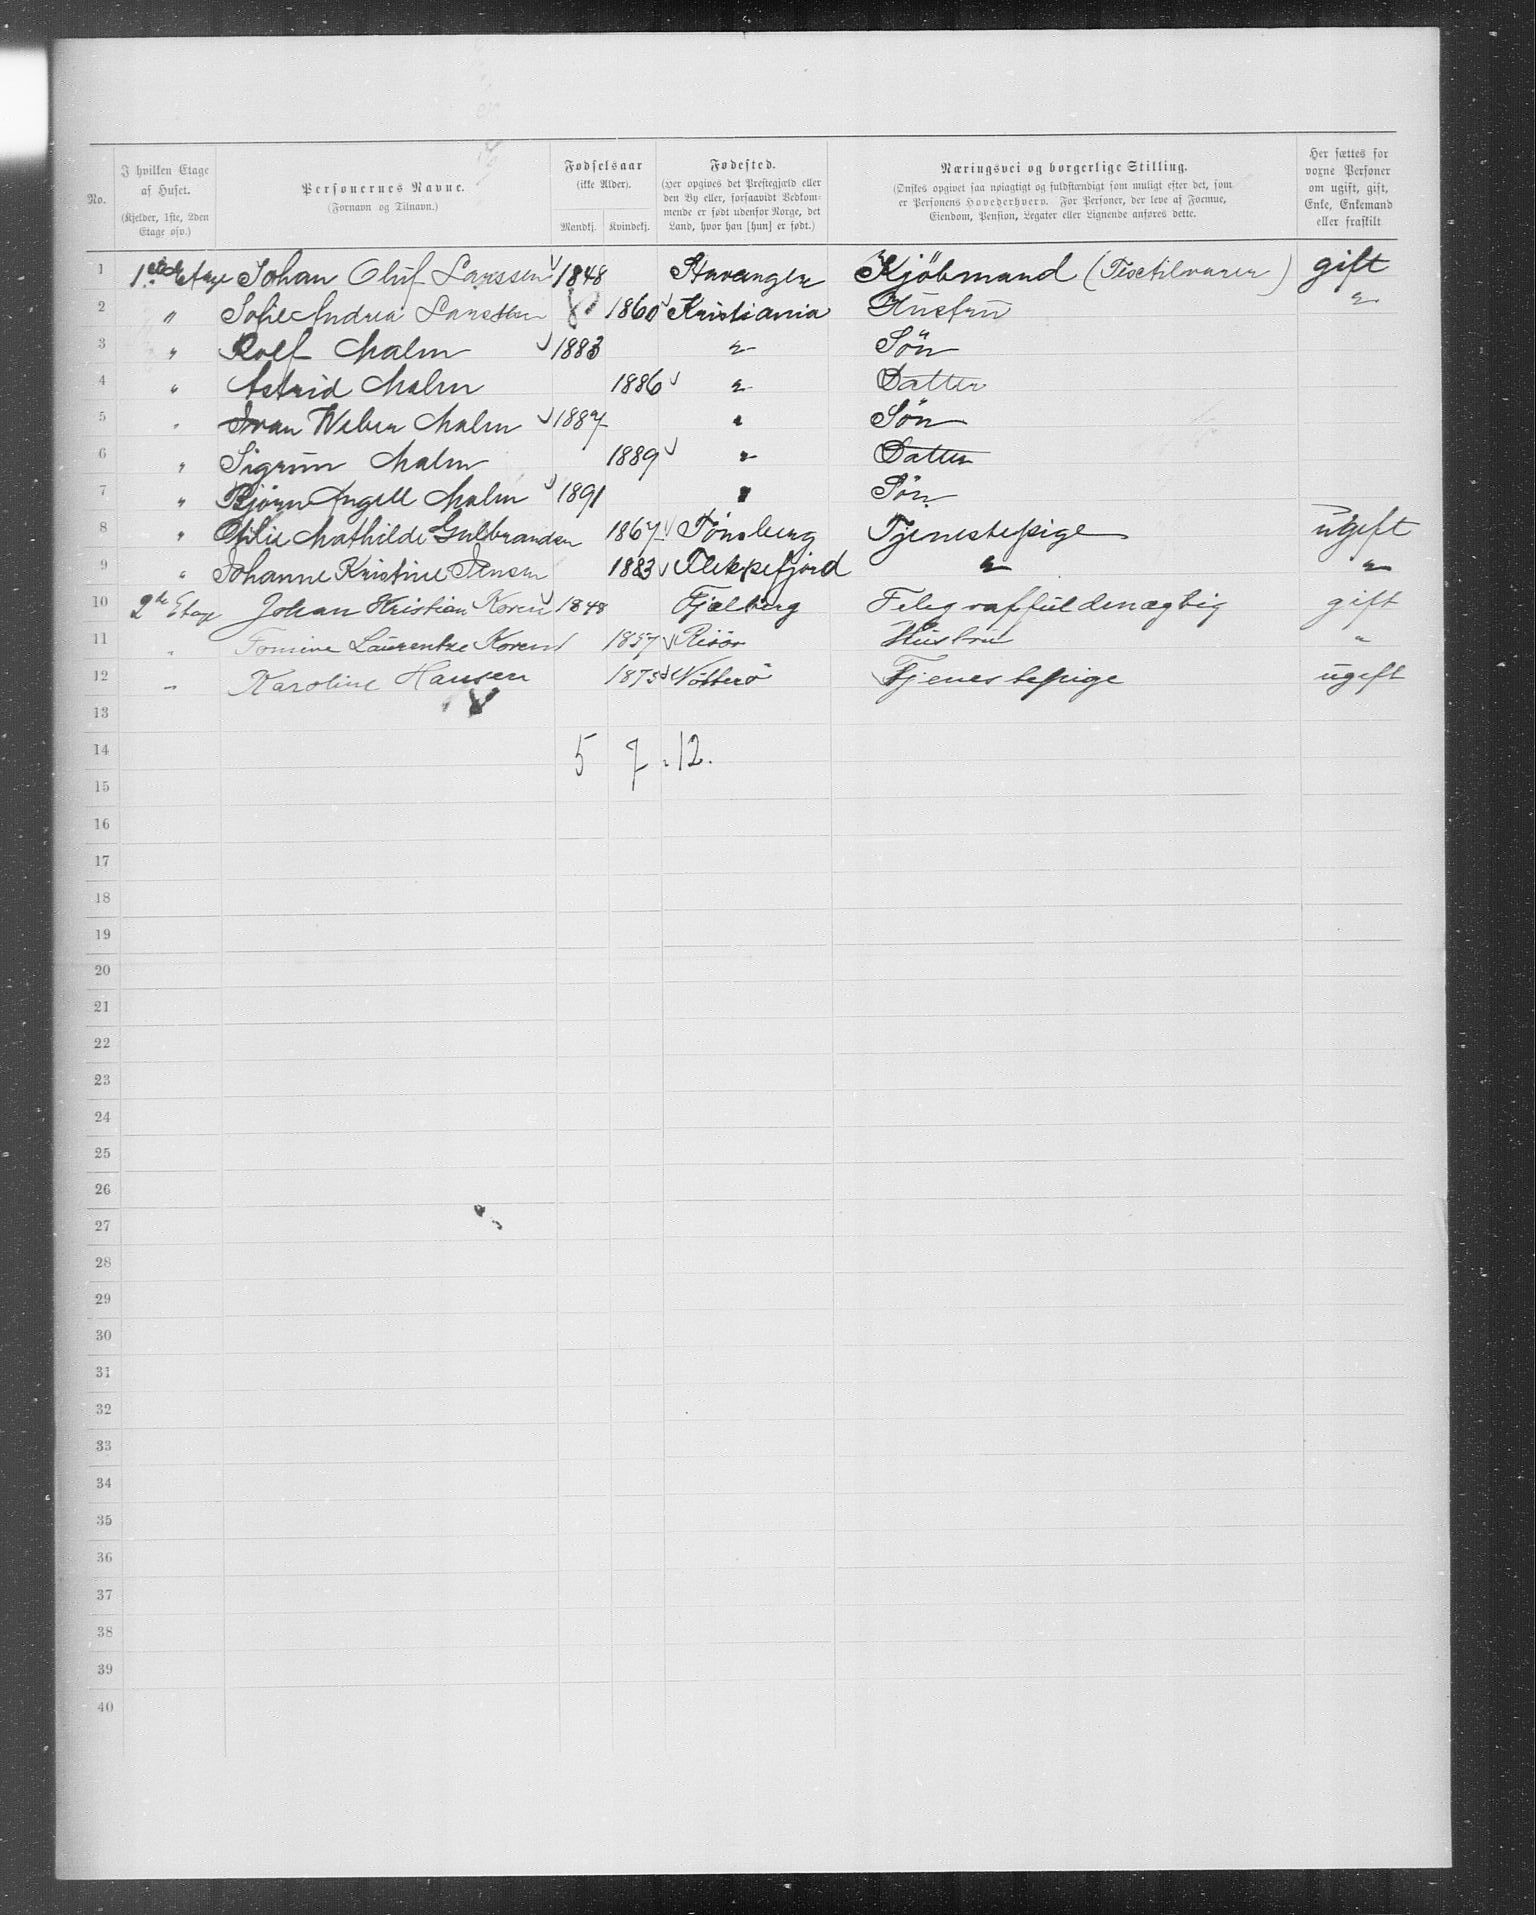 No. | I hvilken Etage af Huset. (Kjelder, 1ste, 2den Etage osv.) | Personernes Navne. (Fornavn og Tilnavn.) | Fødselsaar (ikke Alder). Mandkj. | Kvindekj. | Fødested. (Her opgives det Prestegjæld eller den By eller, forsaavidt Vedkommende er født udenfor Norge, det Land, hvor han [hun] er født.) | Næringsvei og borgerlige Stilling. (Ønskes opgivet saa nøiagtigt og fuldstændigt som muligt efter det, som er Personens Hovederhverv. For Personer, der leve af Formue, Eiendom, Pension, Legater eller Lignende anføres dette. | Her sættes for voxne Personer om ugift, gift, Enke, Enkemand eller fraskilt
1 1ste Etage Johan Oluf Larssen 1848 Stavanger Kjöbmand (Textilvarer) gift
2 " Sofie Andrea Larssen 1860 Kristiania Hustru "
3 " Rolf Malm 1883 " Sön
4 " Astrid Malm 1886 " Datter
5 " Ivan Weber Malm 1887 " Sön
6 " Sigrun Malm 1889 " Datter
7 " Bjørn Angell Malm 1891 " Sön
8 " Otilie Mathilde Gulbrandsen 1867 Tönsberg Tjenestepige ugift
9 " Johanne Kristine Jensen 1883 Flekkefjord " "
10 2de Etage Johan Kristian Koren 1848 Fjælberg Telegraffuldmægtig gift
11 " Tomine Laurentze Koren 1857 Risör Hustru "
12 " Karoline Hansen 1873 Nötterö Tjenestepige ugift
13
14 5 7 . 12.
15
16
17
18
19
20
21
22
23
24
25
26
27
28
29
30
31
32
33
34
35
36
37
38
39
40